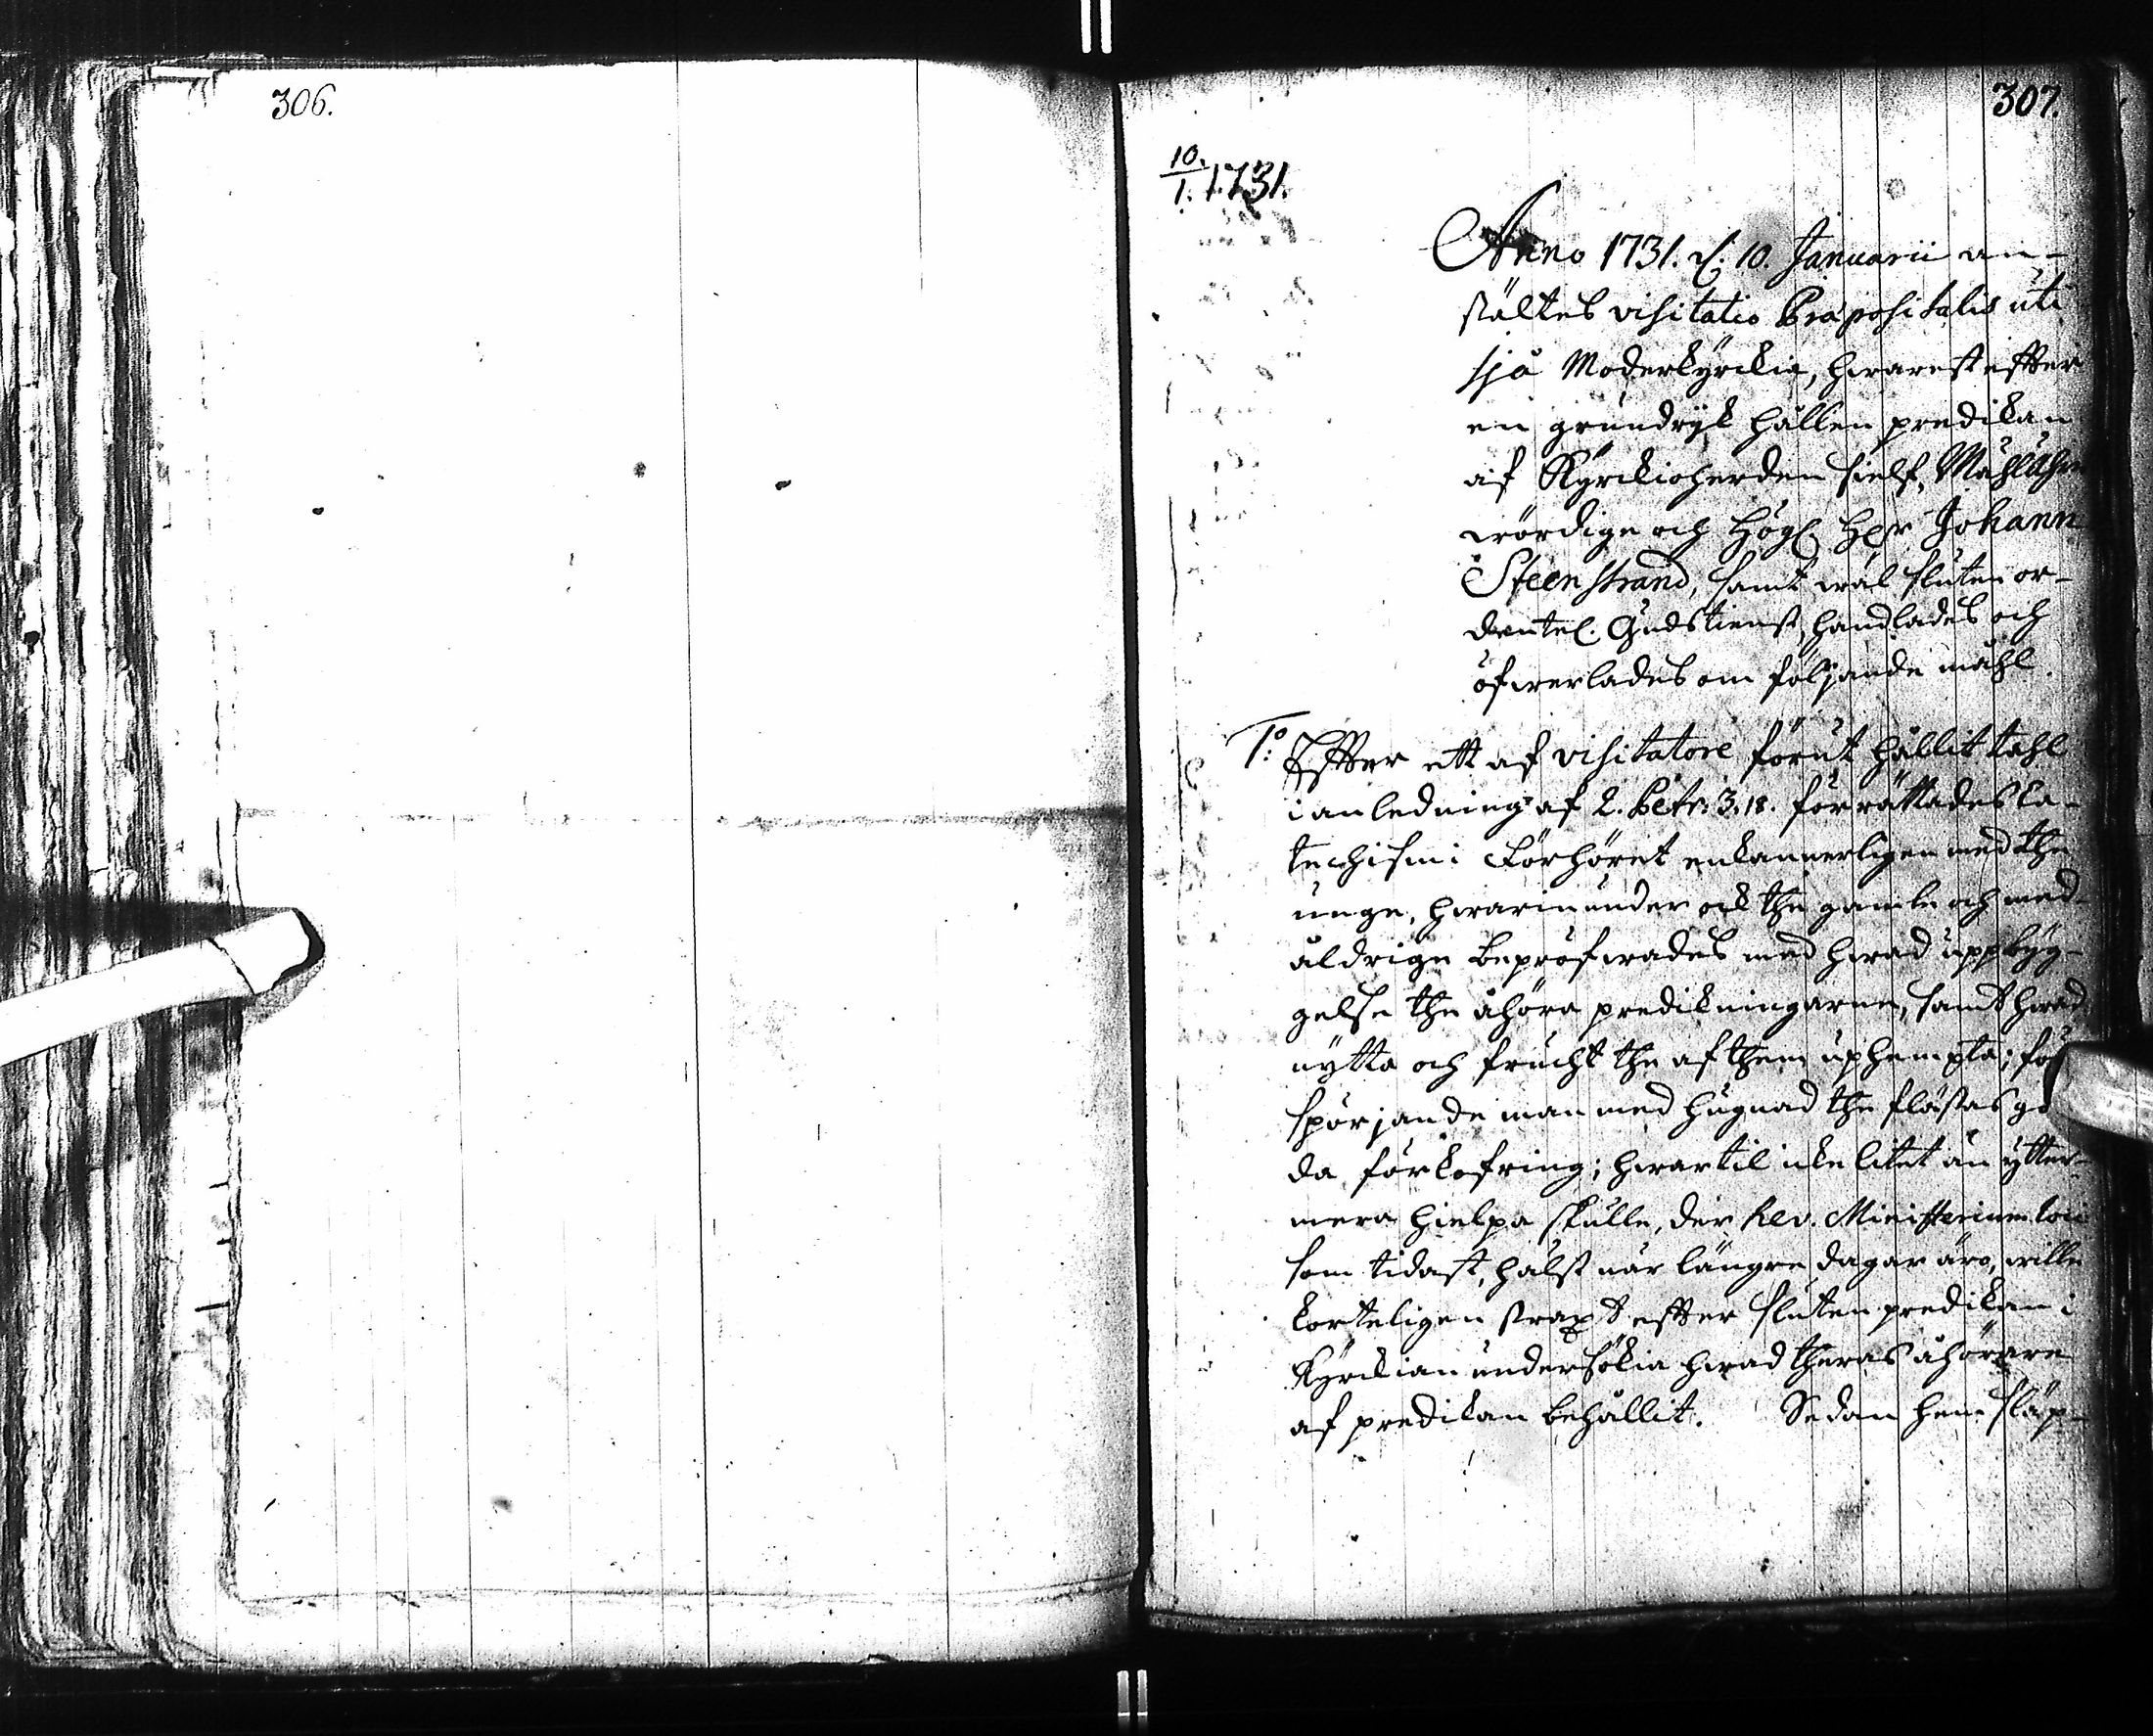 306.
307.
10.
1. 1731.
Anno 1731. d. 10. Januarii an-
stältes visitatio Præpositalis uti
sjå Moderkyrckia, hwarest effter
en grundryk hållen predikan
af Kyrckioherden sielf, Wähl
wördige och Högl. Her Johann
Steenstrand, samt wäl sluten or-
dentel. Gudstienst, handlades och
öfwerlades om följande måhl.
1:o Effter ett af visitatore förut hållit tahl
i anledning af 2. Petr: 3. 18. förrättades ca-
techismi Förhöret enkannerligen med the
unge, hwarinunder ock the gamle och med-
åldrige bepröfwades med hwad uppbyg-
gelse the åhöra predikningarne, samt hwad
nytta och frucht the af them uphempta; för
spörjande man med hugnad the flästas go
da förkofring; hwartil icke litet än ytter-
mera hielpa skulle, der Rev. Ministerium loci
som tidast, hälst när längre dagar äro, wille
korteligen strax effter sluten predikan i
Kyrckian undersökia hwad theras åhörare
af predikan behållit. Sedan hem släp-